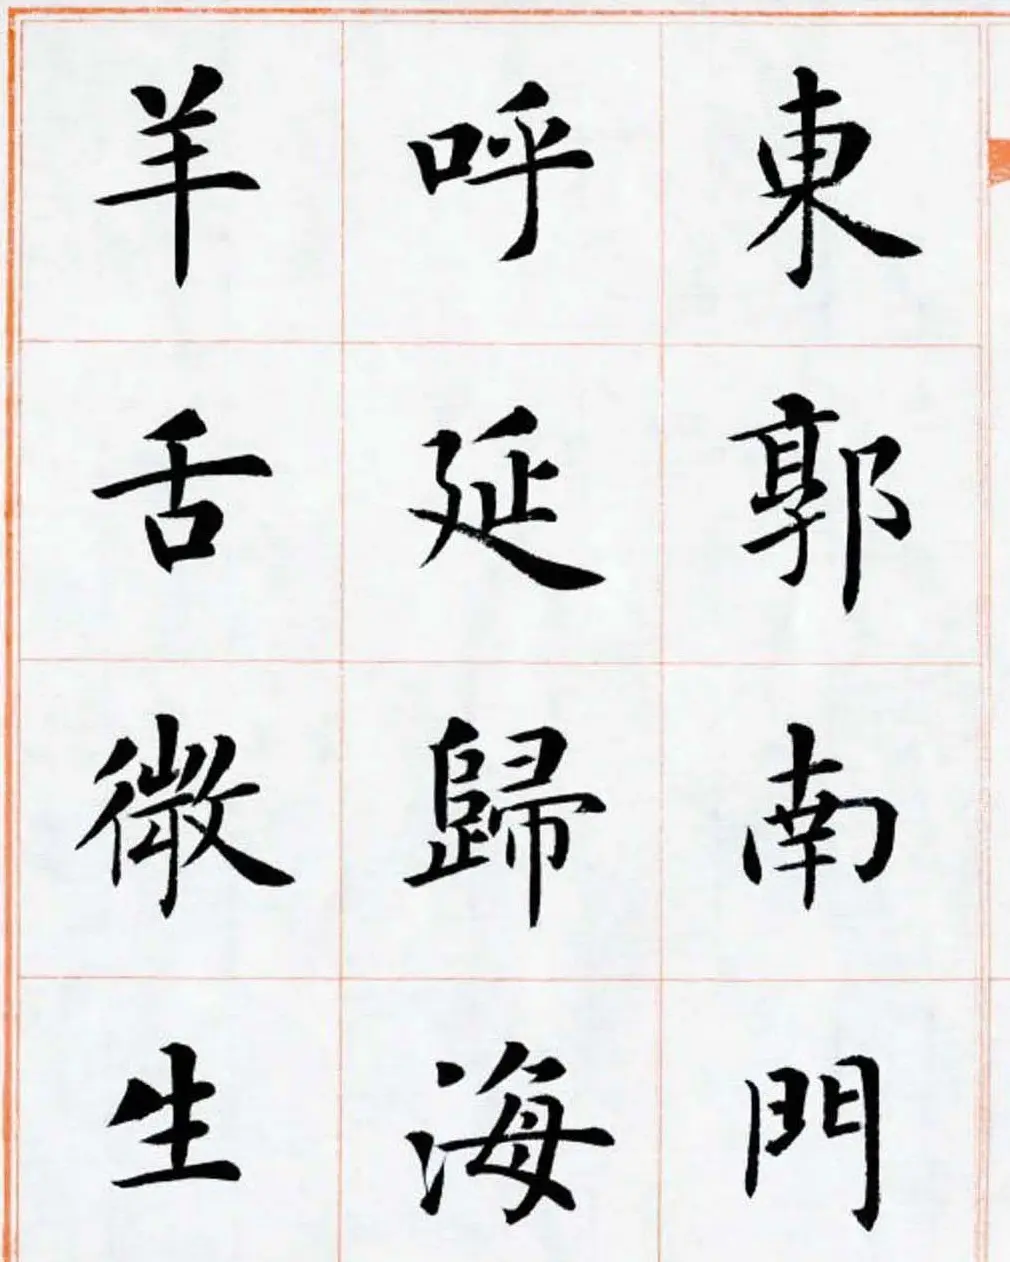 東郭南門
呼延歸海
羊舌微生